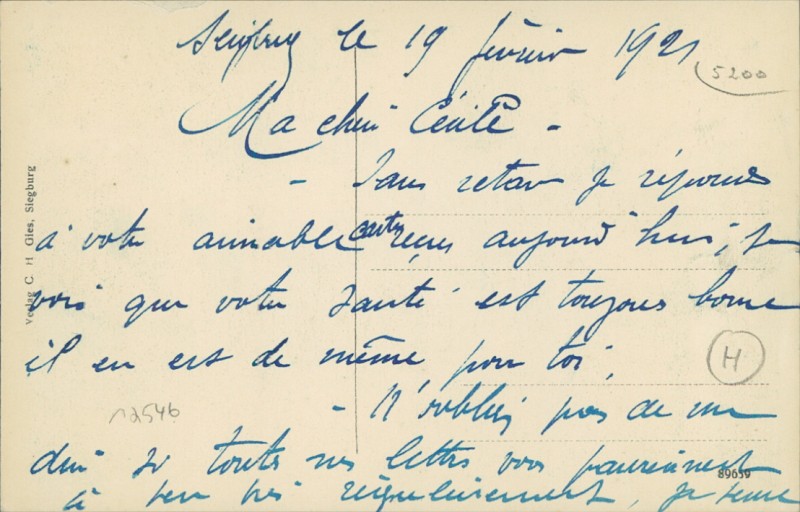 le 19 février 1921
5200
Ma chère Cécile -
- Sans retard je réponds
à votre aimable carte reçue aujourd'hui, je
vois que votre santé est toujours bonne
il en est de même pour toi,
H
- N'oubliez pas de me
12546
dire si toutes mes lettres vous parviennent
89659
à peu près régulièrement, je
Verlag C. H. Gies, Siegburg